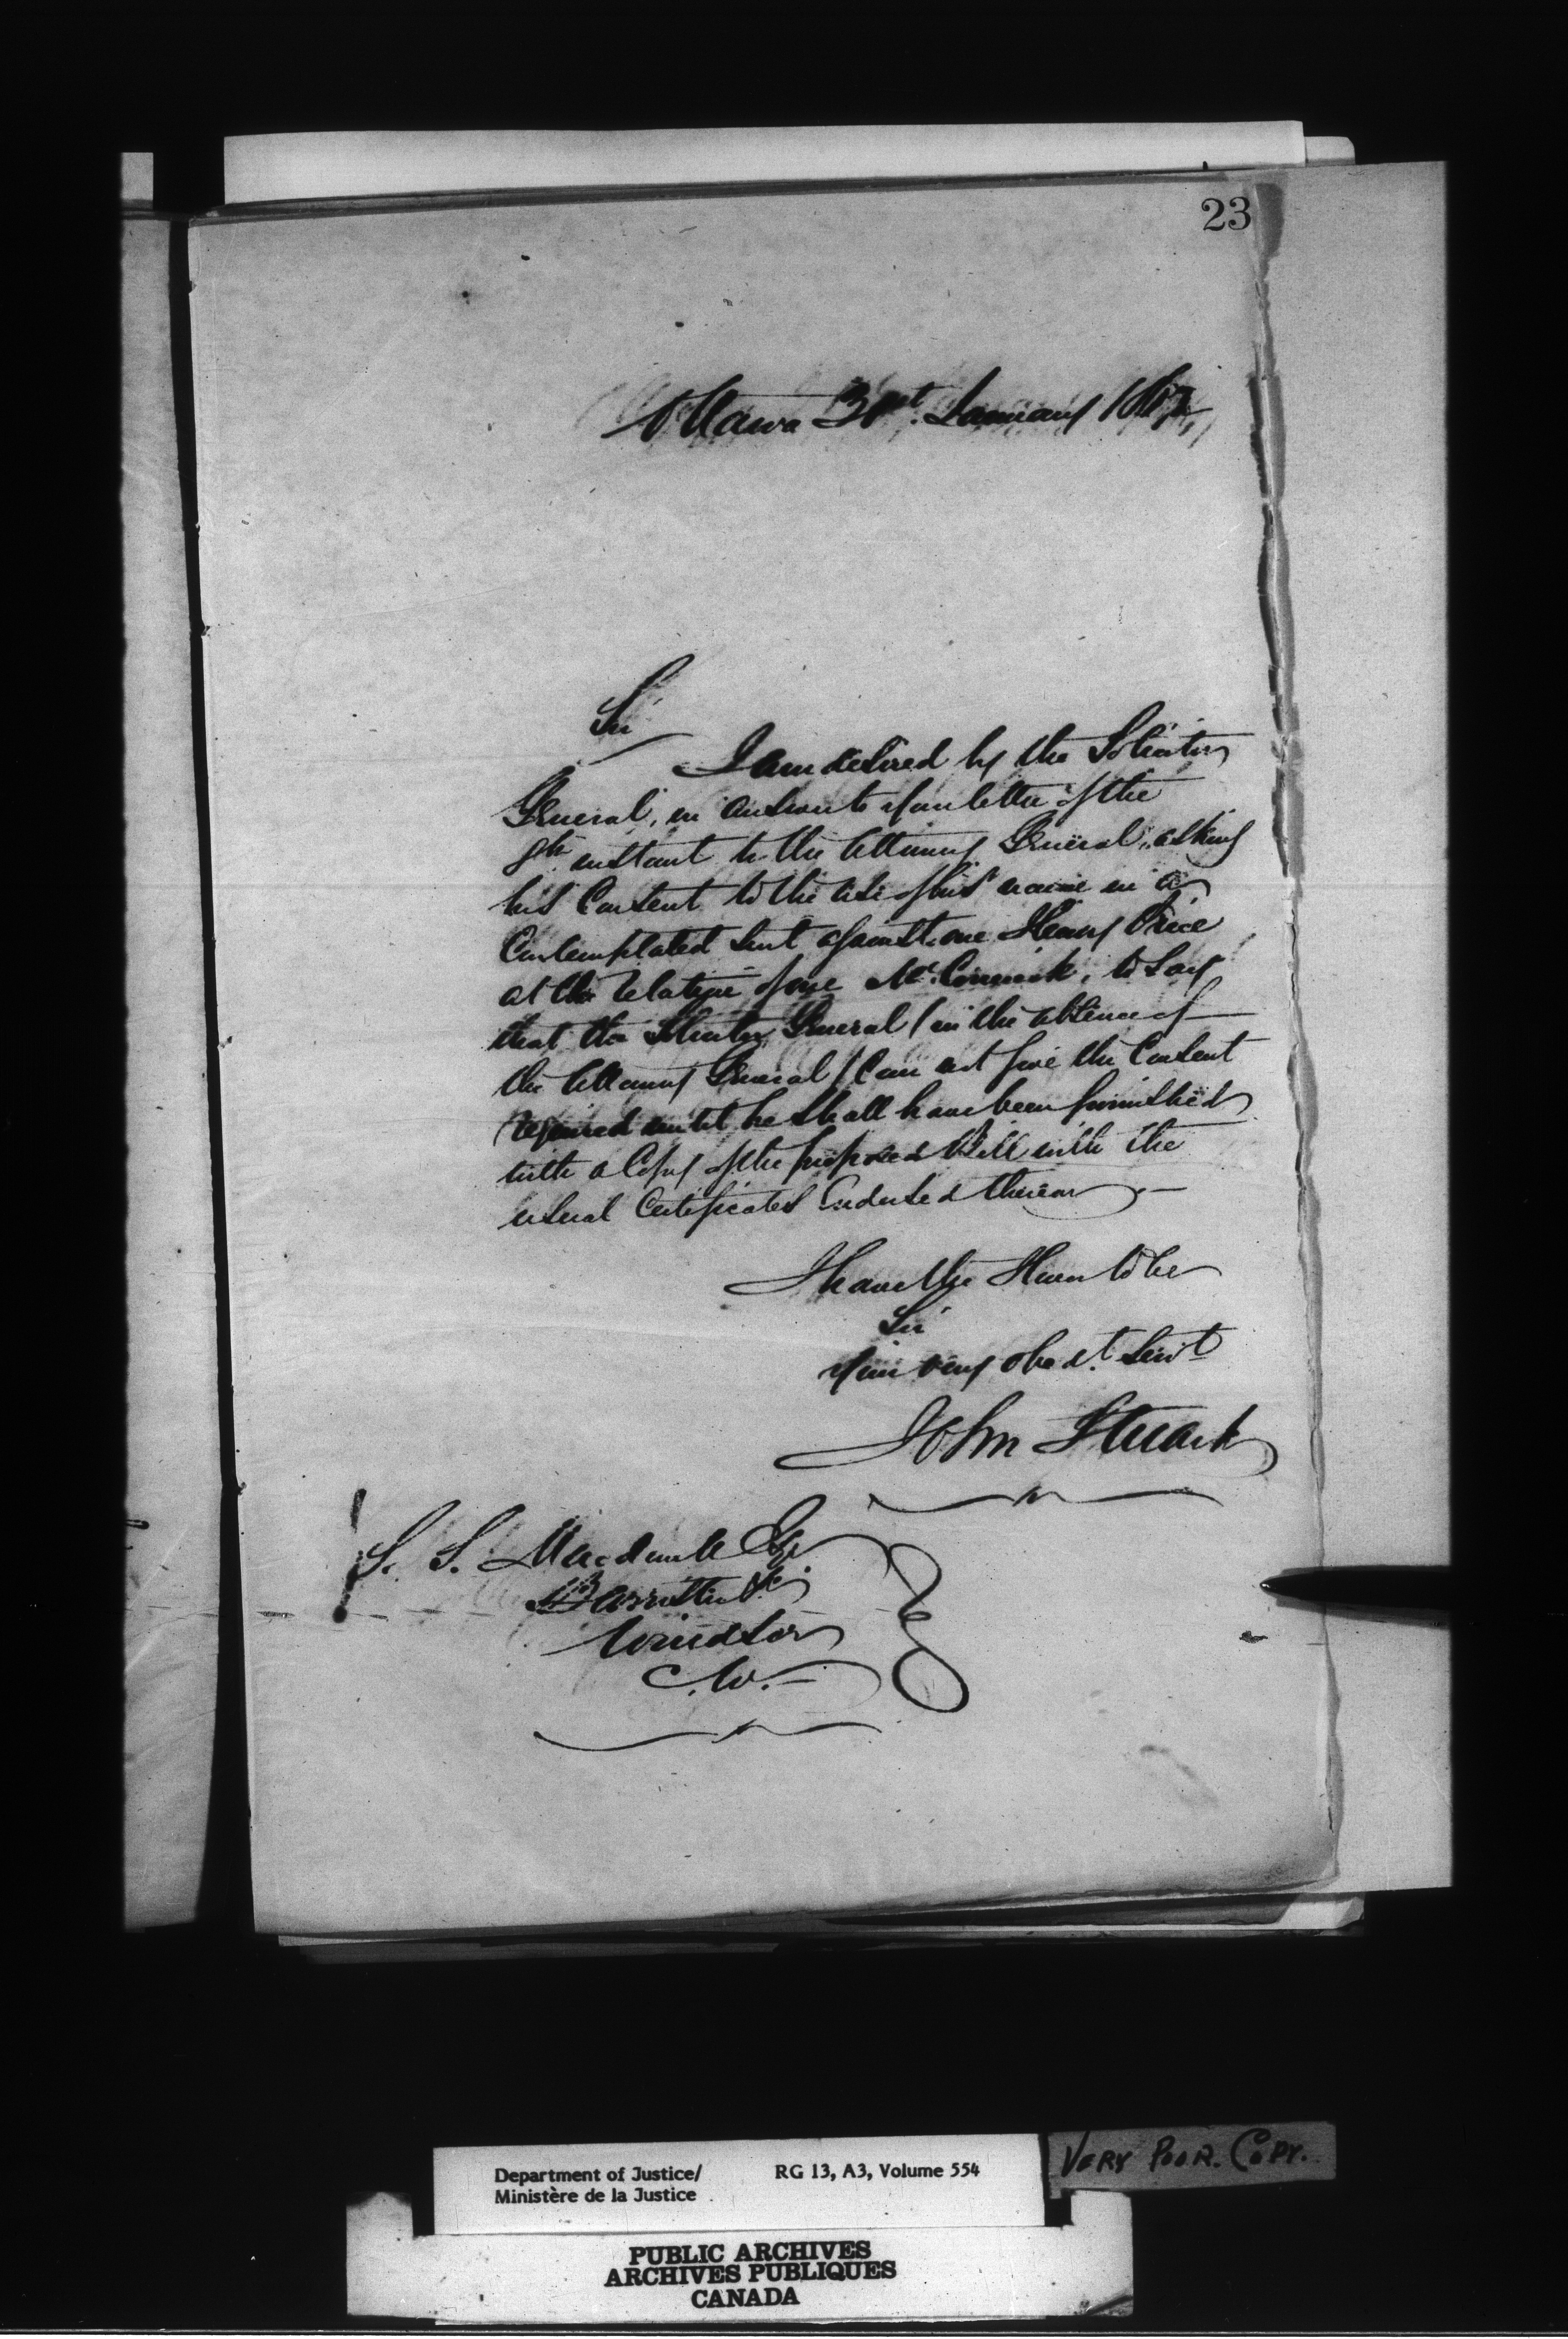 23
Ottawa 31st. January 1867,
Sir
I am desired by the Solicitor
General, in answer to your letter of the
9th instant to the Attorney General, asking
his Consent to the use of his name in a
Contemplated suit against one Henry Price
at the relation of one McCormick, to say
that the Solicitor General / in the absence of
the Attorney General / Can not give the Consent
required until he shall have been furnished
with a Copy of the proposed Bill with the
usual Certificates Endorsed thereon.—
I have the Honor to be
Sir
Your very obedt. Servt
John Stuart
S. S. Macdonell Esq
Barrister &c
Windsor
C.W.—
Department of Justice/
Ministère de la Justice
RG 13, A3, Volume 554
VERY POOR. COPY.
PUBLIC ARCHIVES
ARCHIVES PUBLIQUES
CANADA